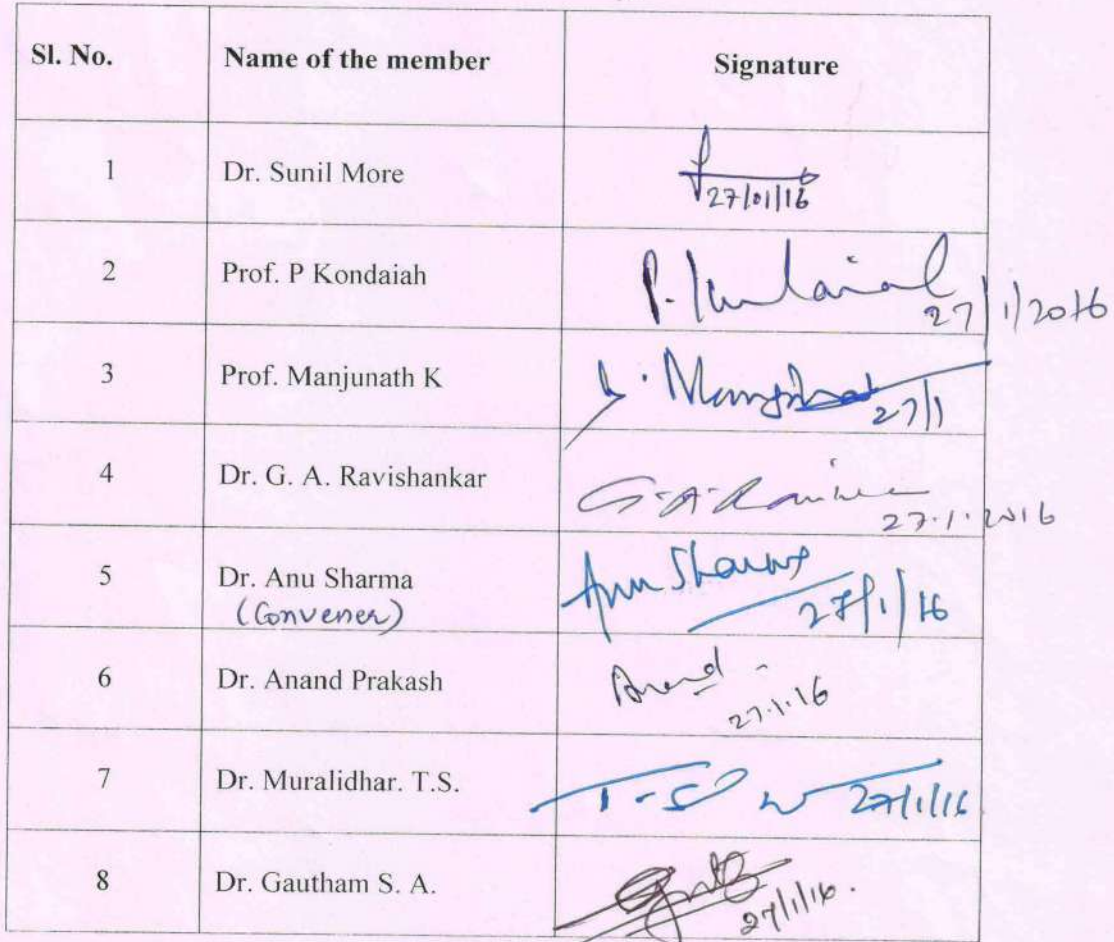 Sl. No. Name of the member Signature
1 Dr. Sunil More
27/01/16
2 Prof. P Kondaiah P. Kondaiah
27/1/2016
3 Prof. Manjunath K
27/1
4 Dr. G. A. Ravishankar G. A. 
27.1.2016
5 Dr. Anu Sharma Anu Sharma
(Convener) 27/1/16
6 Dr. Anand Prakash Anand
27.1.16
7 Dr. Muralidhar. T.S. T-S 27/1/16
8 Dr. Gautham S. A.
27/1/16.